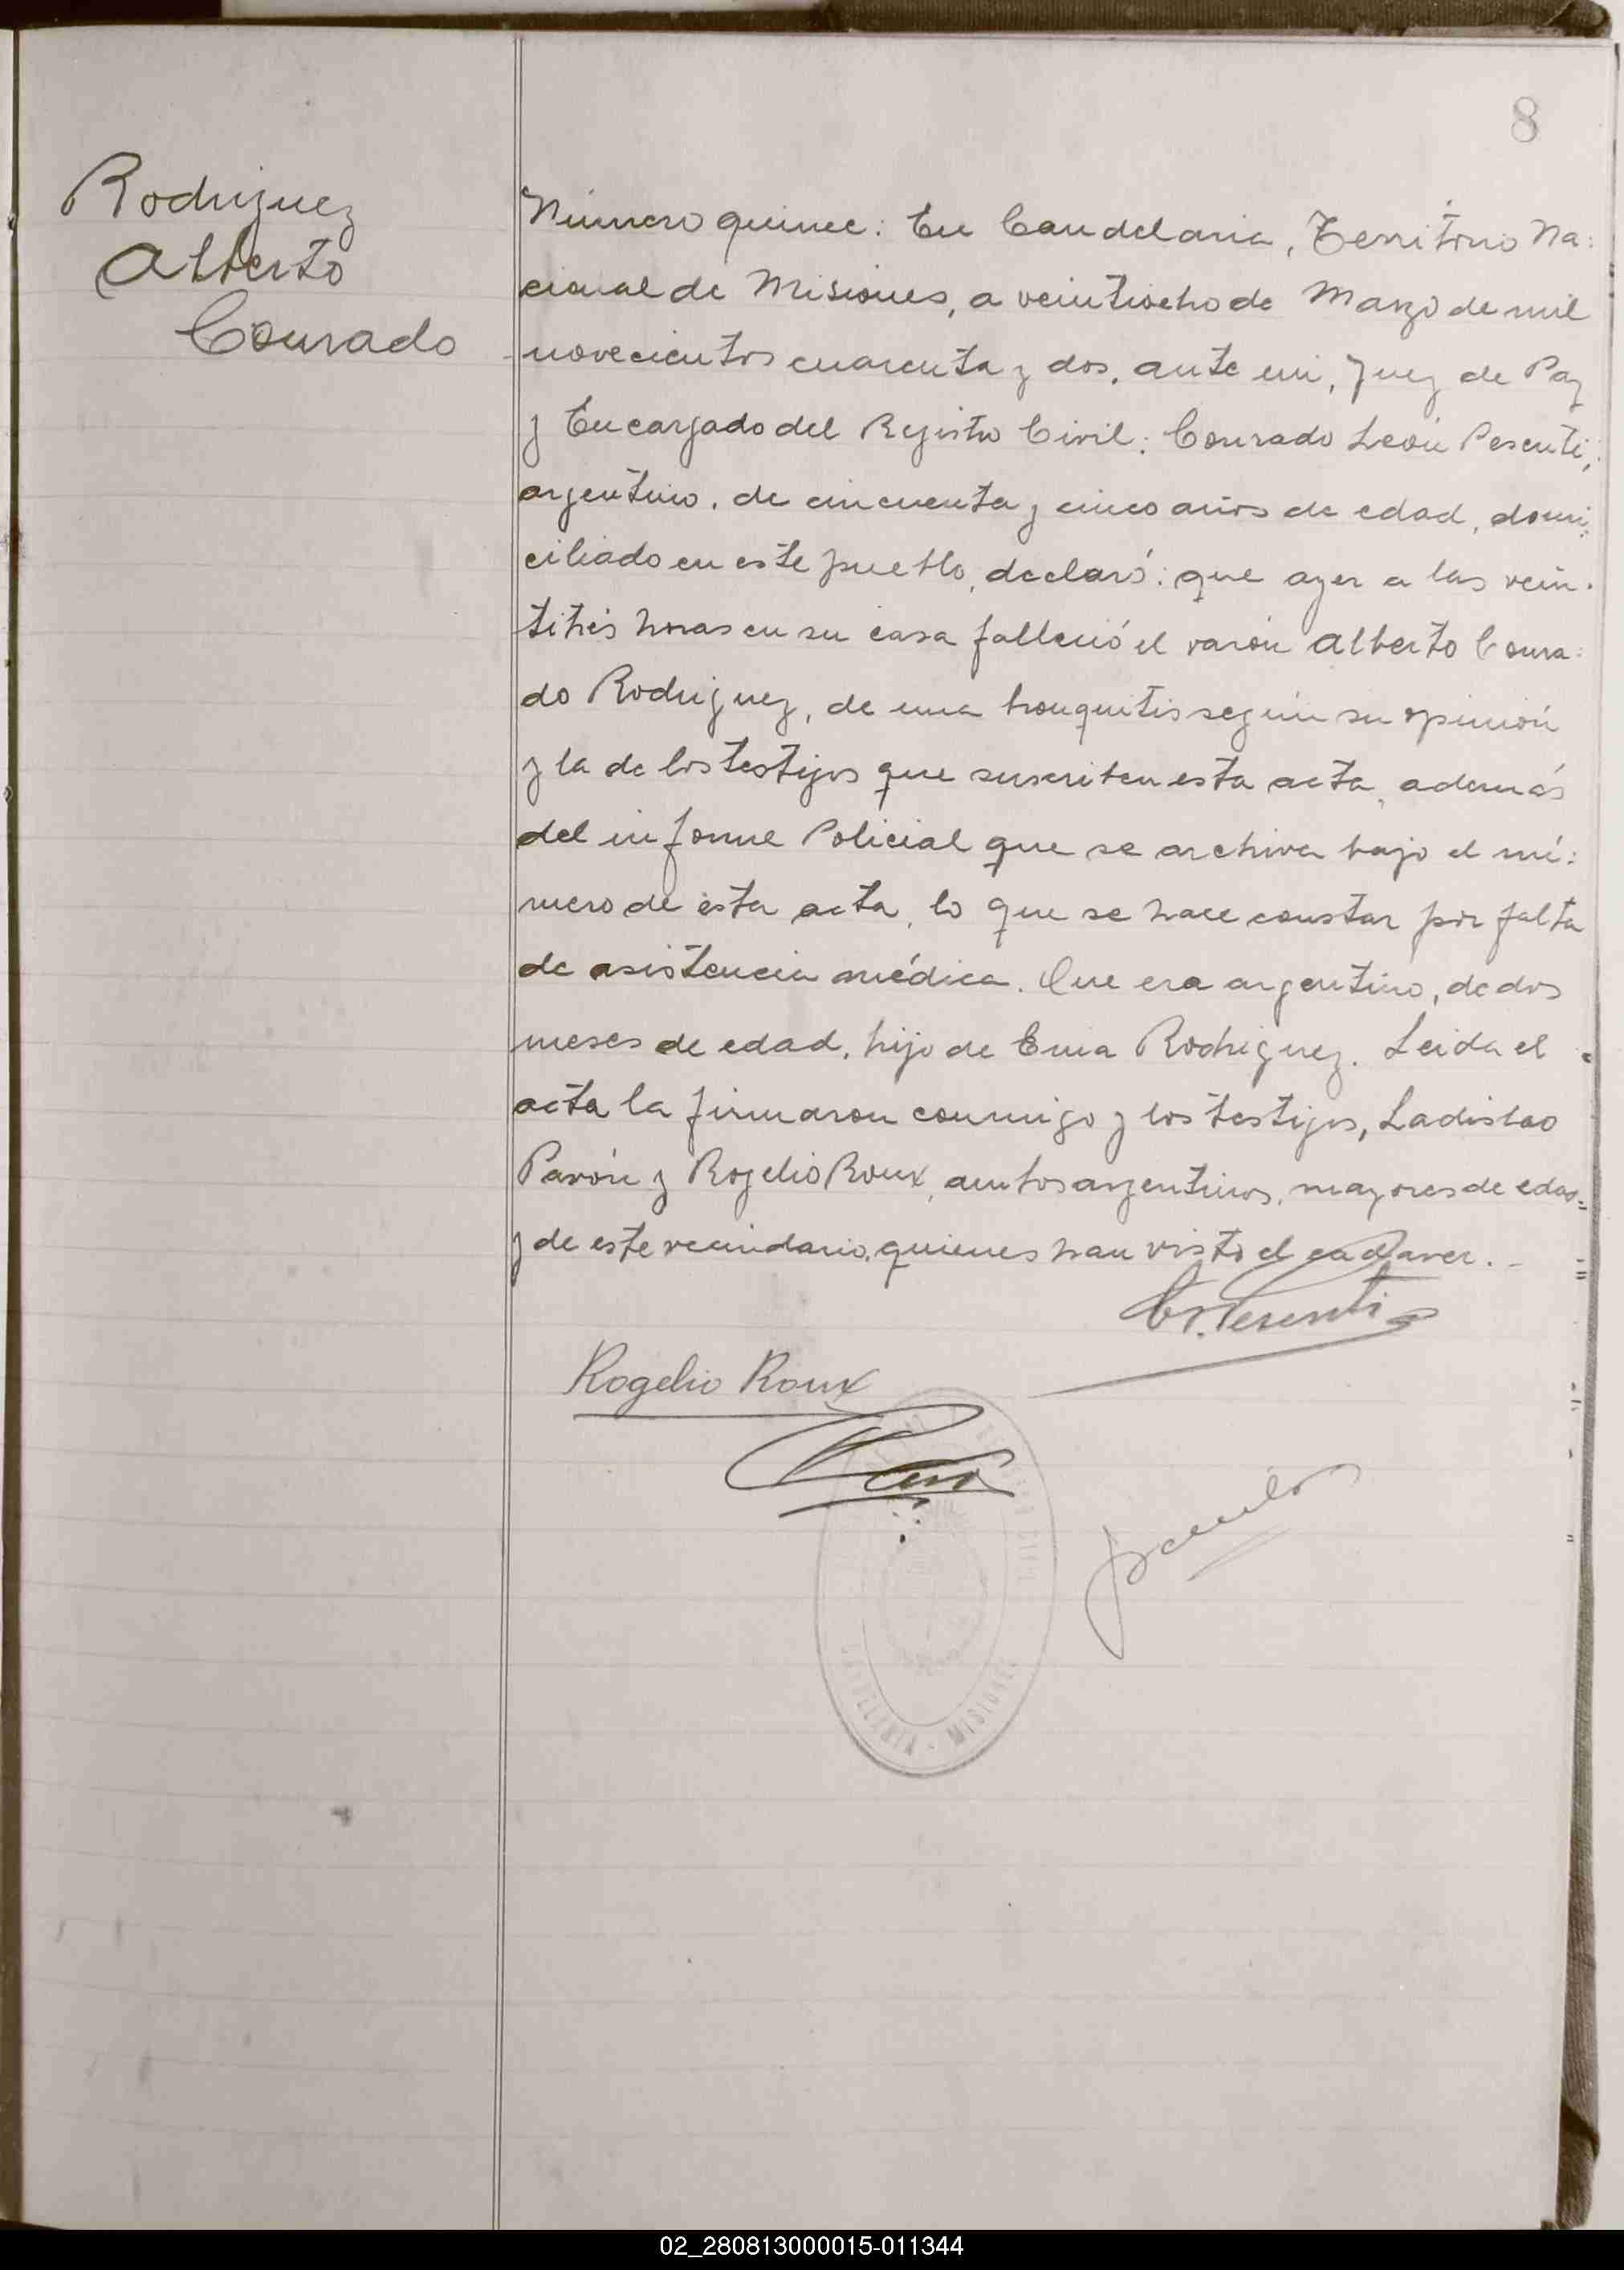 8
Rodriguez
Alberto
Conrado
Número quince: En Candelaria, Territorio Na:
cional de Misiones, a veintiocho de Marzo de mil
novecientos cuarenta y dos, ante mi, Juez de Paz
y Encargado del Registro Civil: Conrado León Pesenti,
argentino, de cincuenta y cinco años de edad, domi:
ciliado en este pueblo, declaró: que ayer a las vein-
titrés horas en su casa falleció el varón Alberto Conra:
do Rodriguez, de una bronquitis según su opinión
y la de los testigos que suscriben esta acta, además
del informe Policial que se archiva bajo el nú:
mero de esta acta, lo que se hace constar por falta
de asistencia médica. Que era argentino, de dos
meses de edad, hijo de Ema Rodriguez. Leida el
acta la firmaron conmigo y los testigos, Ladislao
Pavón y Rogelio Roux, ambos argentinos, mayores de edad
y de este vecindario, quienes han visto el cadaver.-
Pesenti
Rogelio Roux
MISIONES
02_280813000015-011344